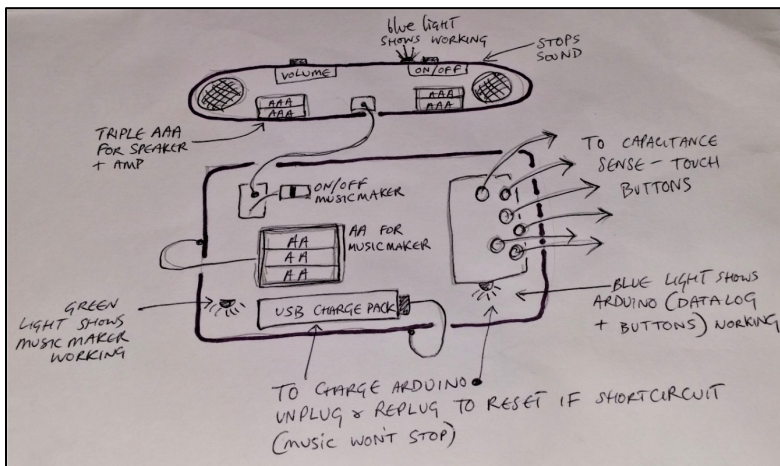 blue light
SHOWS WORKING
STOPS
SOUND
VOLUME
ON/OFF
AAA
AAA
AAA
AAA
TRIPLE AAA
FOR SPEAKER
+ AMP
TO CAPACITANCE
SENSE - TOUCH
BUTTONS
ON/OFF
MUSICMAKER
AA FOR
MUSICMAKER
AA
AA
AA
GREEN
LIGHT SHOWS
MUSIC MAKER
WORKING
USB CHARGE PACK
BLUE LIGHT SHOWS
ARDUINO (DATA LOG
+ BUTTONS) WORKING
TO CHARGE ARDUINO
UNPLUG & REPLUG TO RESET IF SHORTCIRCUIT
(MUSIC WON'T STOP)